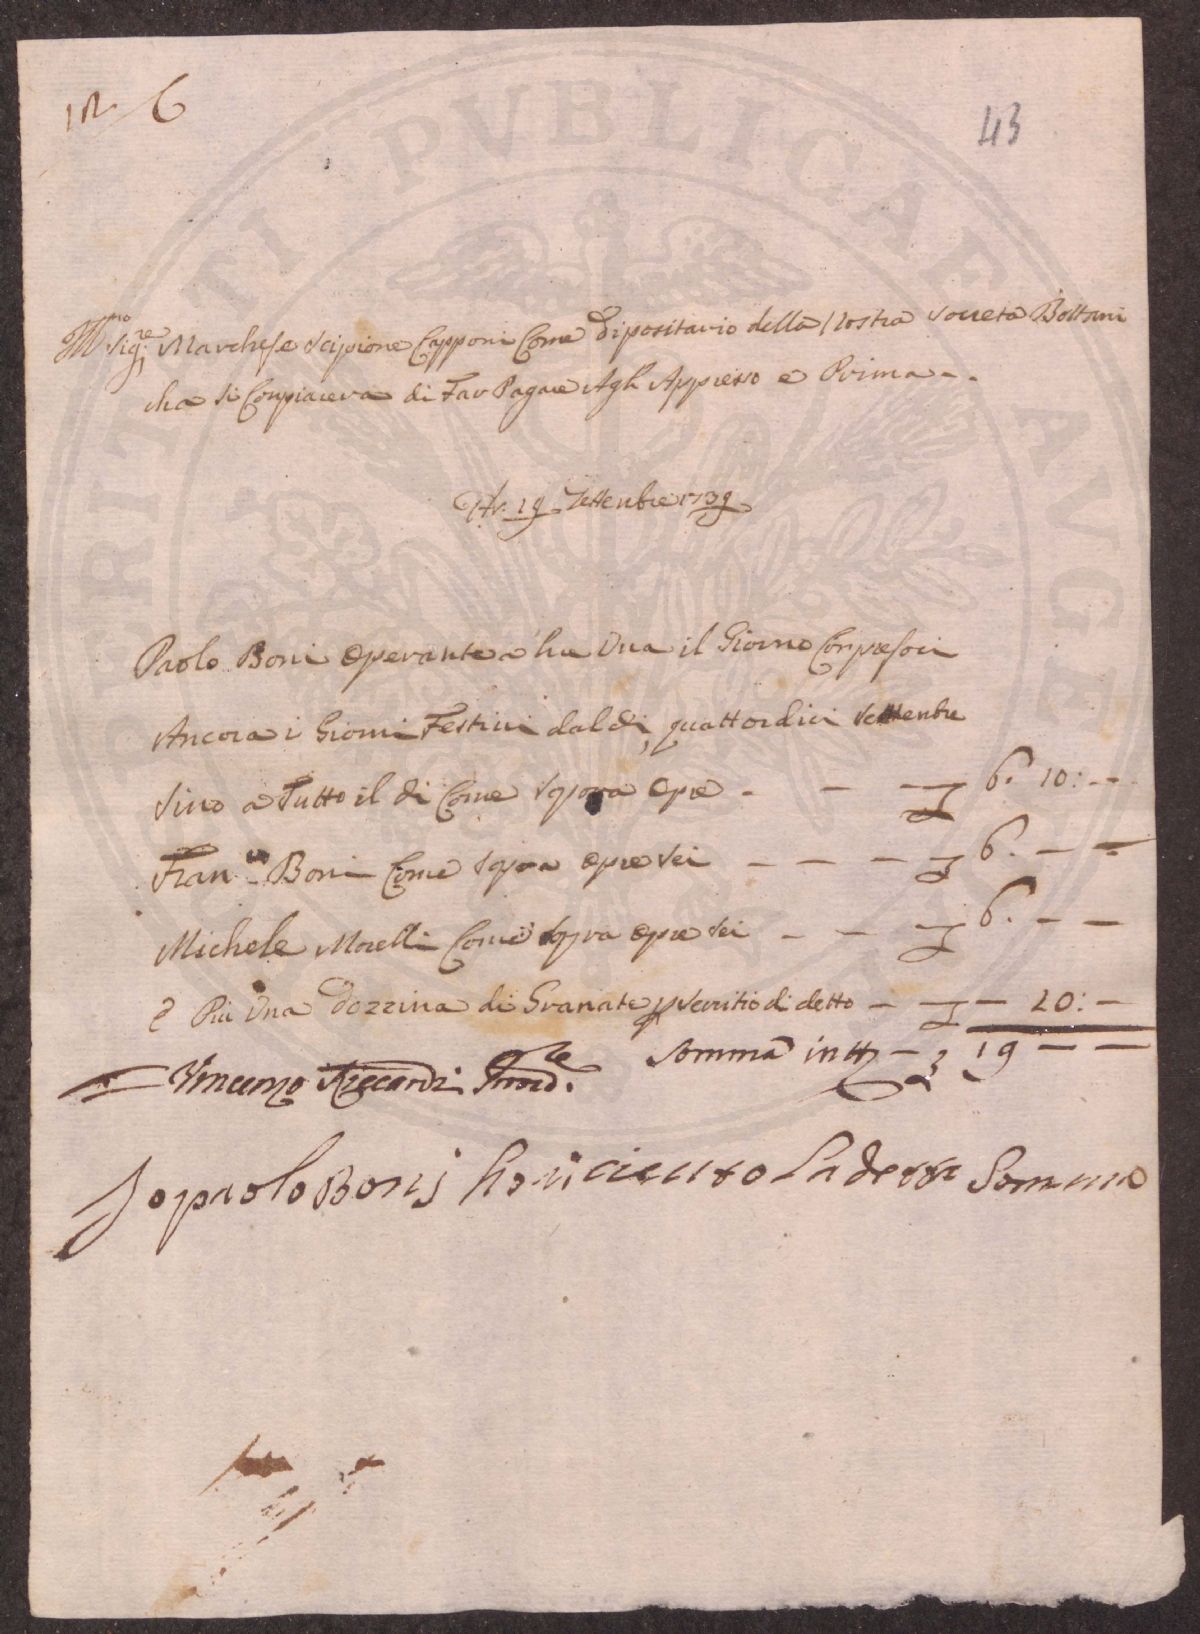 N.° 6
43
Ill.mo Sig.re Marchese Scipione Capponi Come Dipositario della Nostra Societa Bottani
cha si Conpiacera di Far Pagare Agl' Appresso e Prima
Adi 19 Settenbre 1739
Paolo Boni Operante a lire Una il Giorno Conpresoci
Ancora i Giorni Festivi dal di quattordici Settenbre
Sino a Tutto il di Come Sopra Opre - - - £ 6. 10: -
Fran.co Boni Come Sopra Opre Sei - - - £ 6. - -
Michele Morelli Come Sopra Opre Sei - - - £ 6. - -
E Più Una Dozzina di Granate p Servitio di detto - £ - 10: -
Somma in tt - £ 19 - -
Vincenzo Riccardi
Io paolo Boni ho riceuto La detta Somma
PVBLICAE